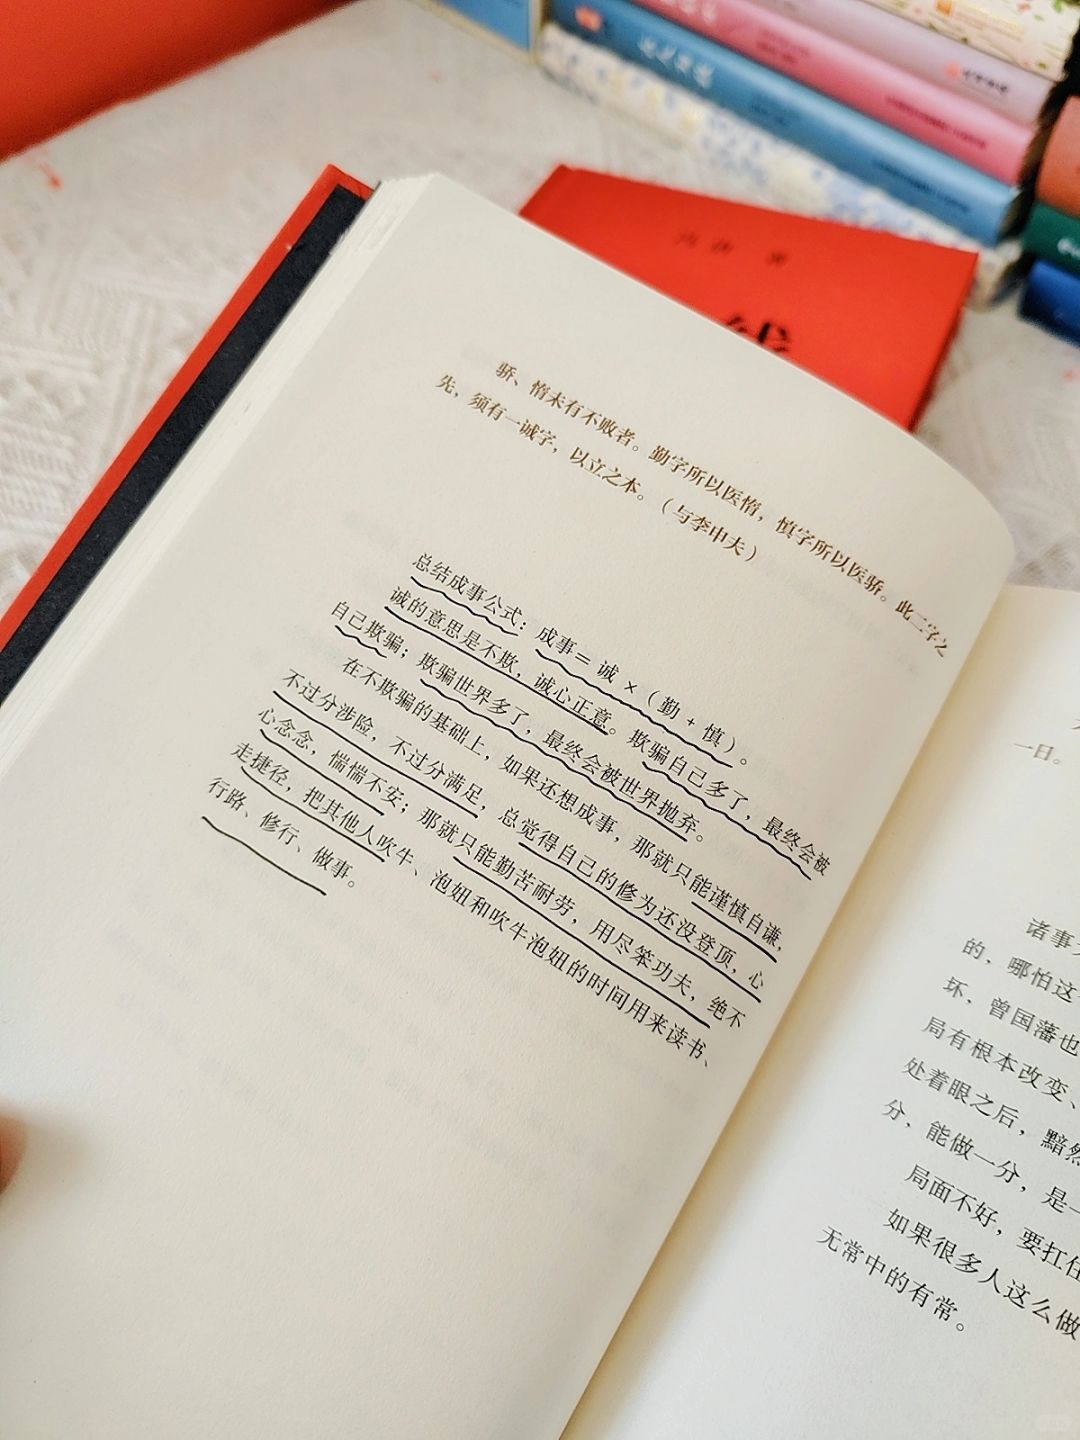 冯唐 著
线
骄、惰未有不败者。勤字所以医惰，慎字所以医骄。此二字之
先，须有一诚字，以立之本。（与李申夫）
总结成事公式：成事= 诚 ×（勤 + 慎）。
诚的意思是不欺，诚心正意。欺骗自己多了，最终会被
自己欺骗；欺骗世界多了，最终会被世界抛弃。
在不欺骗的基础上，如果还想成事，那就只能谨慎自谦，
不过分涉险，不过分满足，总觉得自己的修为还没登顶，心
心念念，惴惴不安；那就只能勤苦耐劳，用尽笨功夫，绝不
走捷径，把其他人吹牛、泡妞和吹牛泡妞的时间用来读书、
行路、修行、做事。
一日。
诸事
的，哪怕这
坏，曾国藩也
局有根本改变、
处着眼之后，黯然
分，能做一分，是一
局面不好，要扛住
如果很多人这么做
无常中的有常。